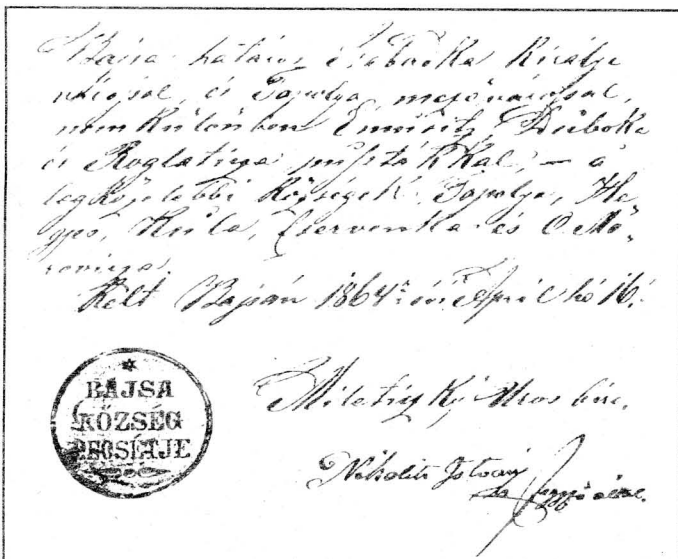 Bajsa határos Szabadka Királyi
várossal, és Topolya mezővárossal,
nem különben Emusitz, Duboka
és Roglaticza pusztákkal, — a
legközelebbi Községek: Topolya, He-
gyes, Kula, Cservenka és O. Mo-
rovicza.
Kelt Bajsán 1864 évi April hó 16.
BAJSA
KÖZSÉG
PECSÉTJE
Uros biro.
Nikolits Istvan
jegyző által.